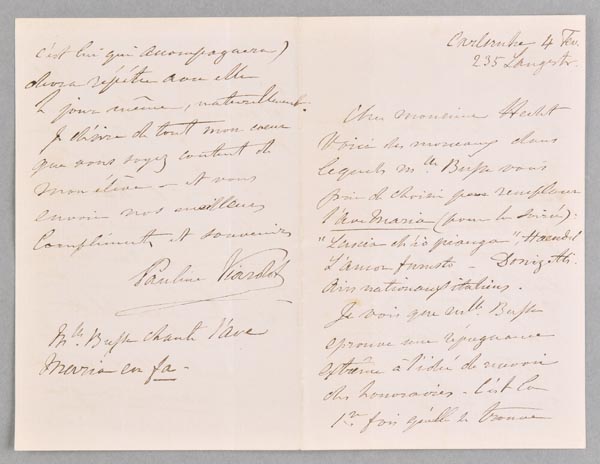 Carlsruhe 4 Fév.
235 Langestr.
Cher monsieur Hecht
Voici des morceaux dans
lesquels Mlle Busk vous
prie de choisir pour remplacer
l'Ave Maria (pour la soirée):
"Lascia ch'io pianga", Haendel
L'amor funesto - Donizetti.
Airs nationaux italiens.
Je vois que Mlle Busk
éprouve une répugnance
extrême à l'idée de recevoir
des honoraires - C'est la
1re fois qu'elle se trouve
c'est lui qui accompagnera)
devra répéter avec elle
le jour même, naturellement.
Je désire de tout mon coeur
que vous soyez content de
mon élève - et vous
envoie nos meilleurs
compliments et souvenirs
Pauline Viardot
Mlle Busk chante l'Ave
Maria en fa -